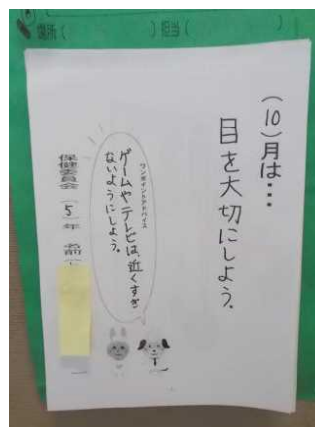 場所（　　　）担当（
（10）月は…
目を大切にしよう。
ワンポイントアドバイス
ゲームやテレビは、近くすぎ
ないようにしよう。
保健委員会（5）年　名前（